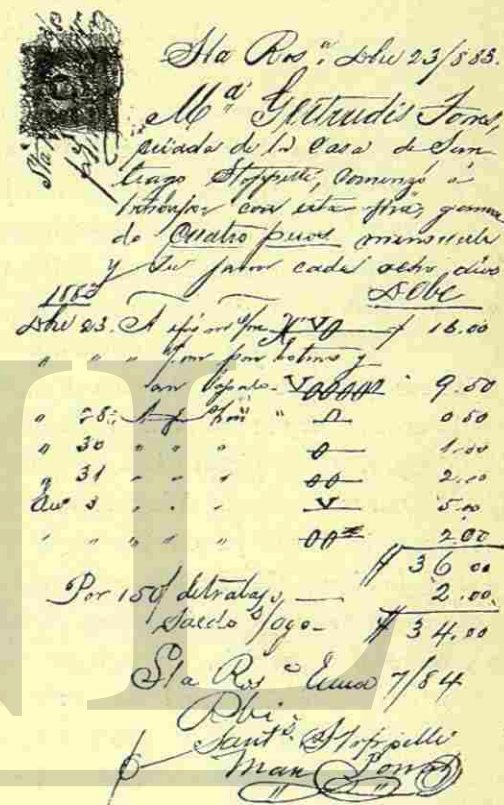 Sta Ros.ª Dbre 23/883.
Mª Gertrudis Torres,
criada de la Casa de San-
tiago Stoppelli, Comenzó á
trabajar con esta fha, ganan
do Cuatro pesos mensuales
y su jabon cada ocho dias
1883 Debe
Dbre 23. A $ 16.00
" " " par botines y
un 9.50
" 28. " 0 50
" 30 " " " 1.00
" 31 " " " 2.00
3 " " " V 5.00
" " " " " 2.00
$ 36 00
Por 15 de trabajo 2.00
Saldo $ 34.00
Sta Ros.ª Enero 7/84
Rbi
Santº Stoppelli